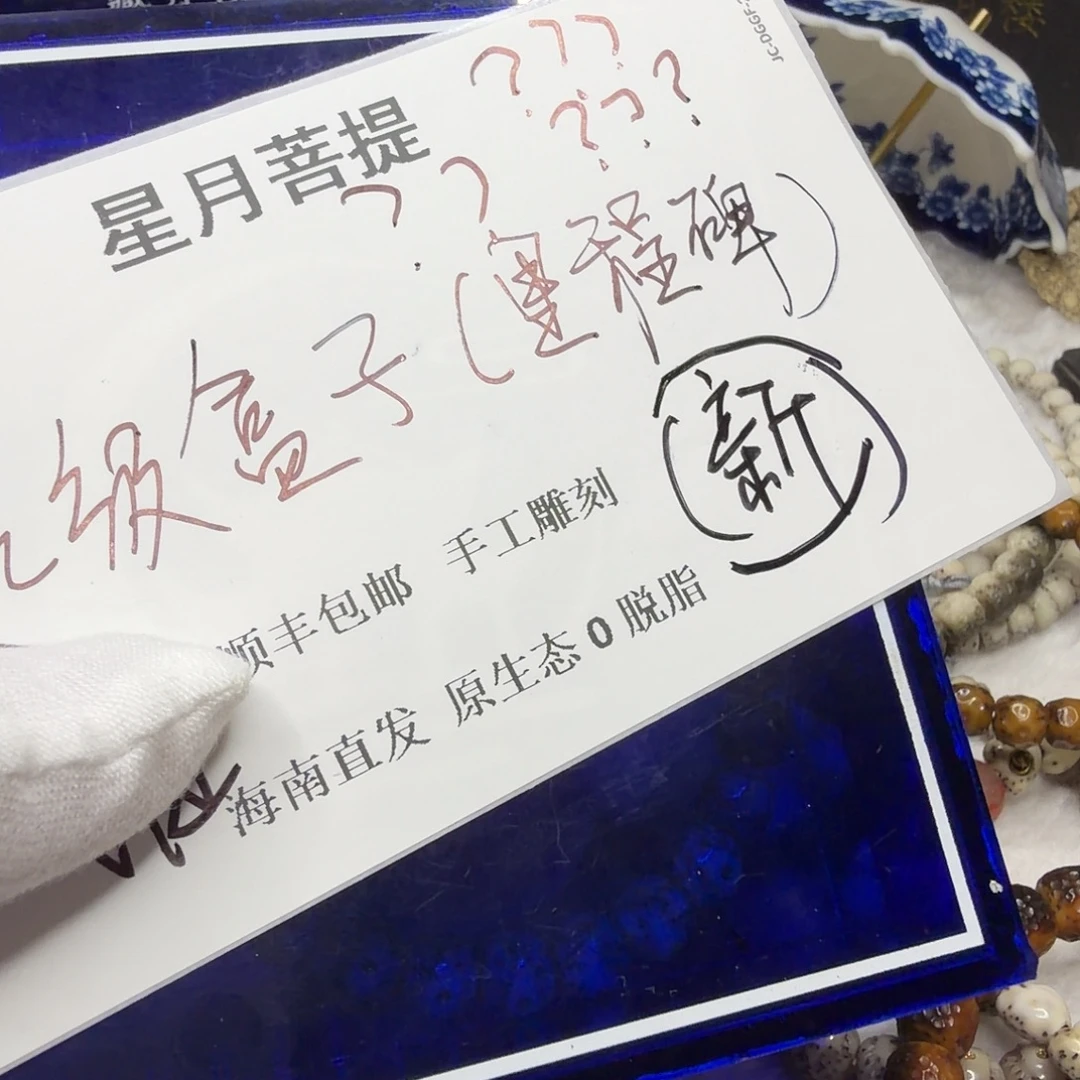 JC-DGGF-
? ? ?
? ? ?
星月菩提
? ?
级盒子(里程碑)
新
顺丰包邮 手工雕刻
海南直发 原生态0脱脂